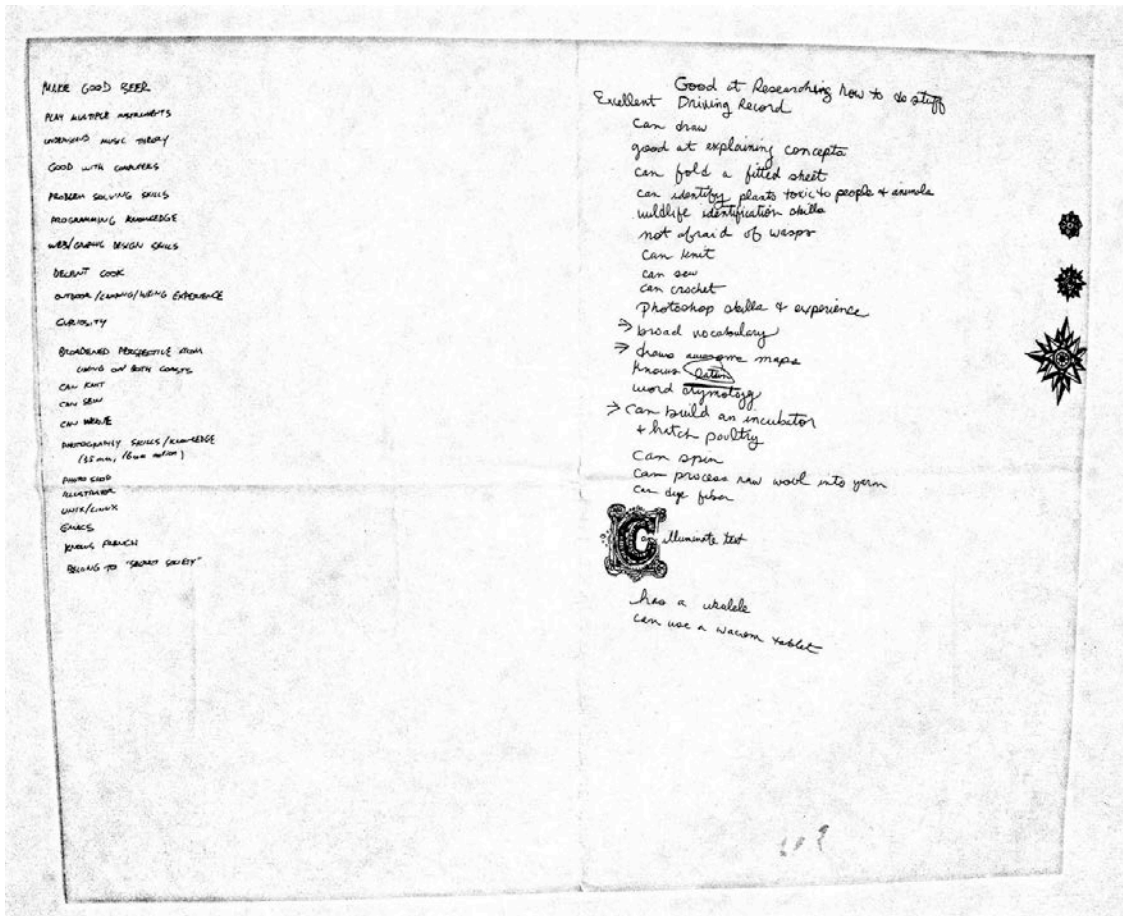 MAKE GOOD BEER
PLAY MULTIPLE INSTRUMENTS
UNDERSTAND MUSIC THEORY
GOOD WITH COMPUTERS
PROBLEM SOLVING SKILLS
PROGRAMMING KNOWLEDGE
WEB/GRAPHIC DESIGN SKILLS
DECENT COOK
OUTDOOR/CAMPING/HIKING EXPERIENCE
CURIOSITY
BROADENED PERSPECTIVE FROM
LIVING ON BOTH COASTS
CAN KNIT
CAN SEW
CAN WEAVE
PHOTOGRAPHY SKILLS/KNOWLEDGE
(35mm, 16mm motion)
PHOTOSHOP
ILLUSTRATOR
UNIX/LINUX
EMACS
KNOWS FRENCH
BELONG TO "SECRET SOCIETY"
Good at Researching how to do stuff
Excellent Driving Record
Can draw
good at explaining concepts
can fold a fitted sheet
can identify plants toxic to people & animals
wildlife identification skills
not afraid of wasps
can knit
can sew
can crochet
Photoshop skills & experience
→ broad vocabulary
→ draws awesome maps
knows Latin
word etymology
→ can build an incubator
+ hatch poultry
Can spin
can process raw wool into yarn
can dye fiber
Can illuminate text
has a ukulele
can use a wacom tablet